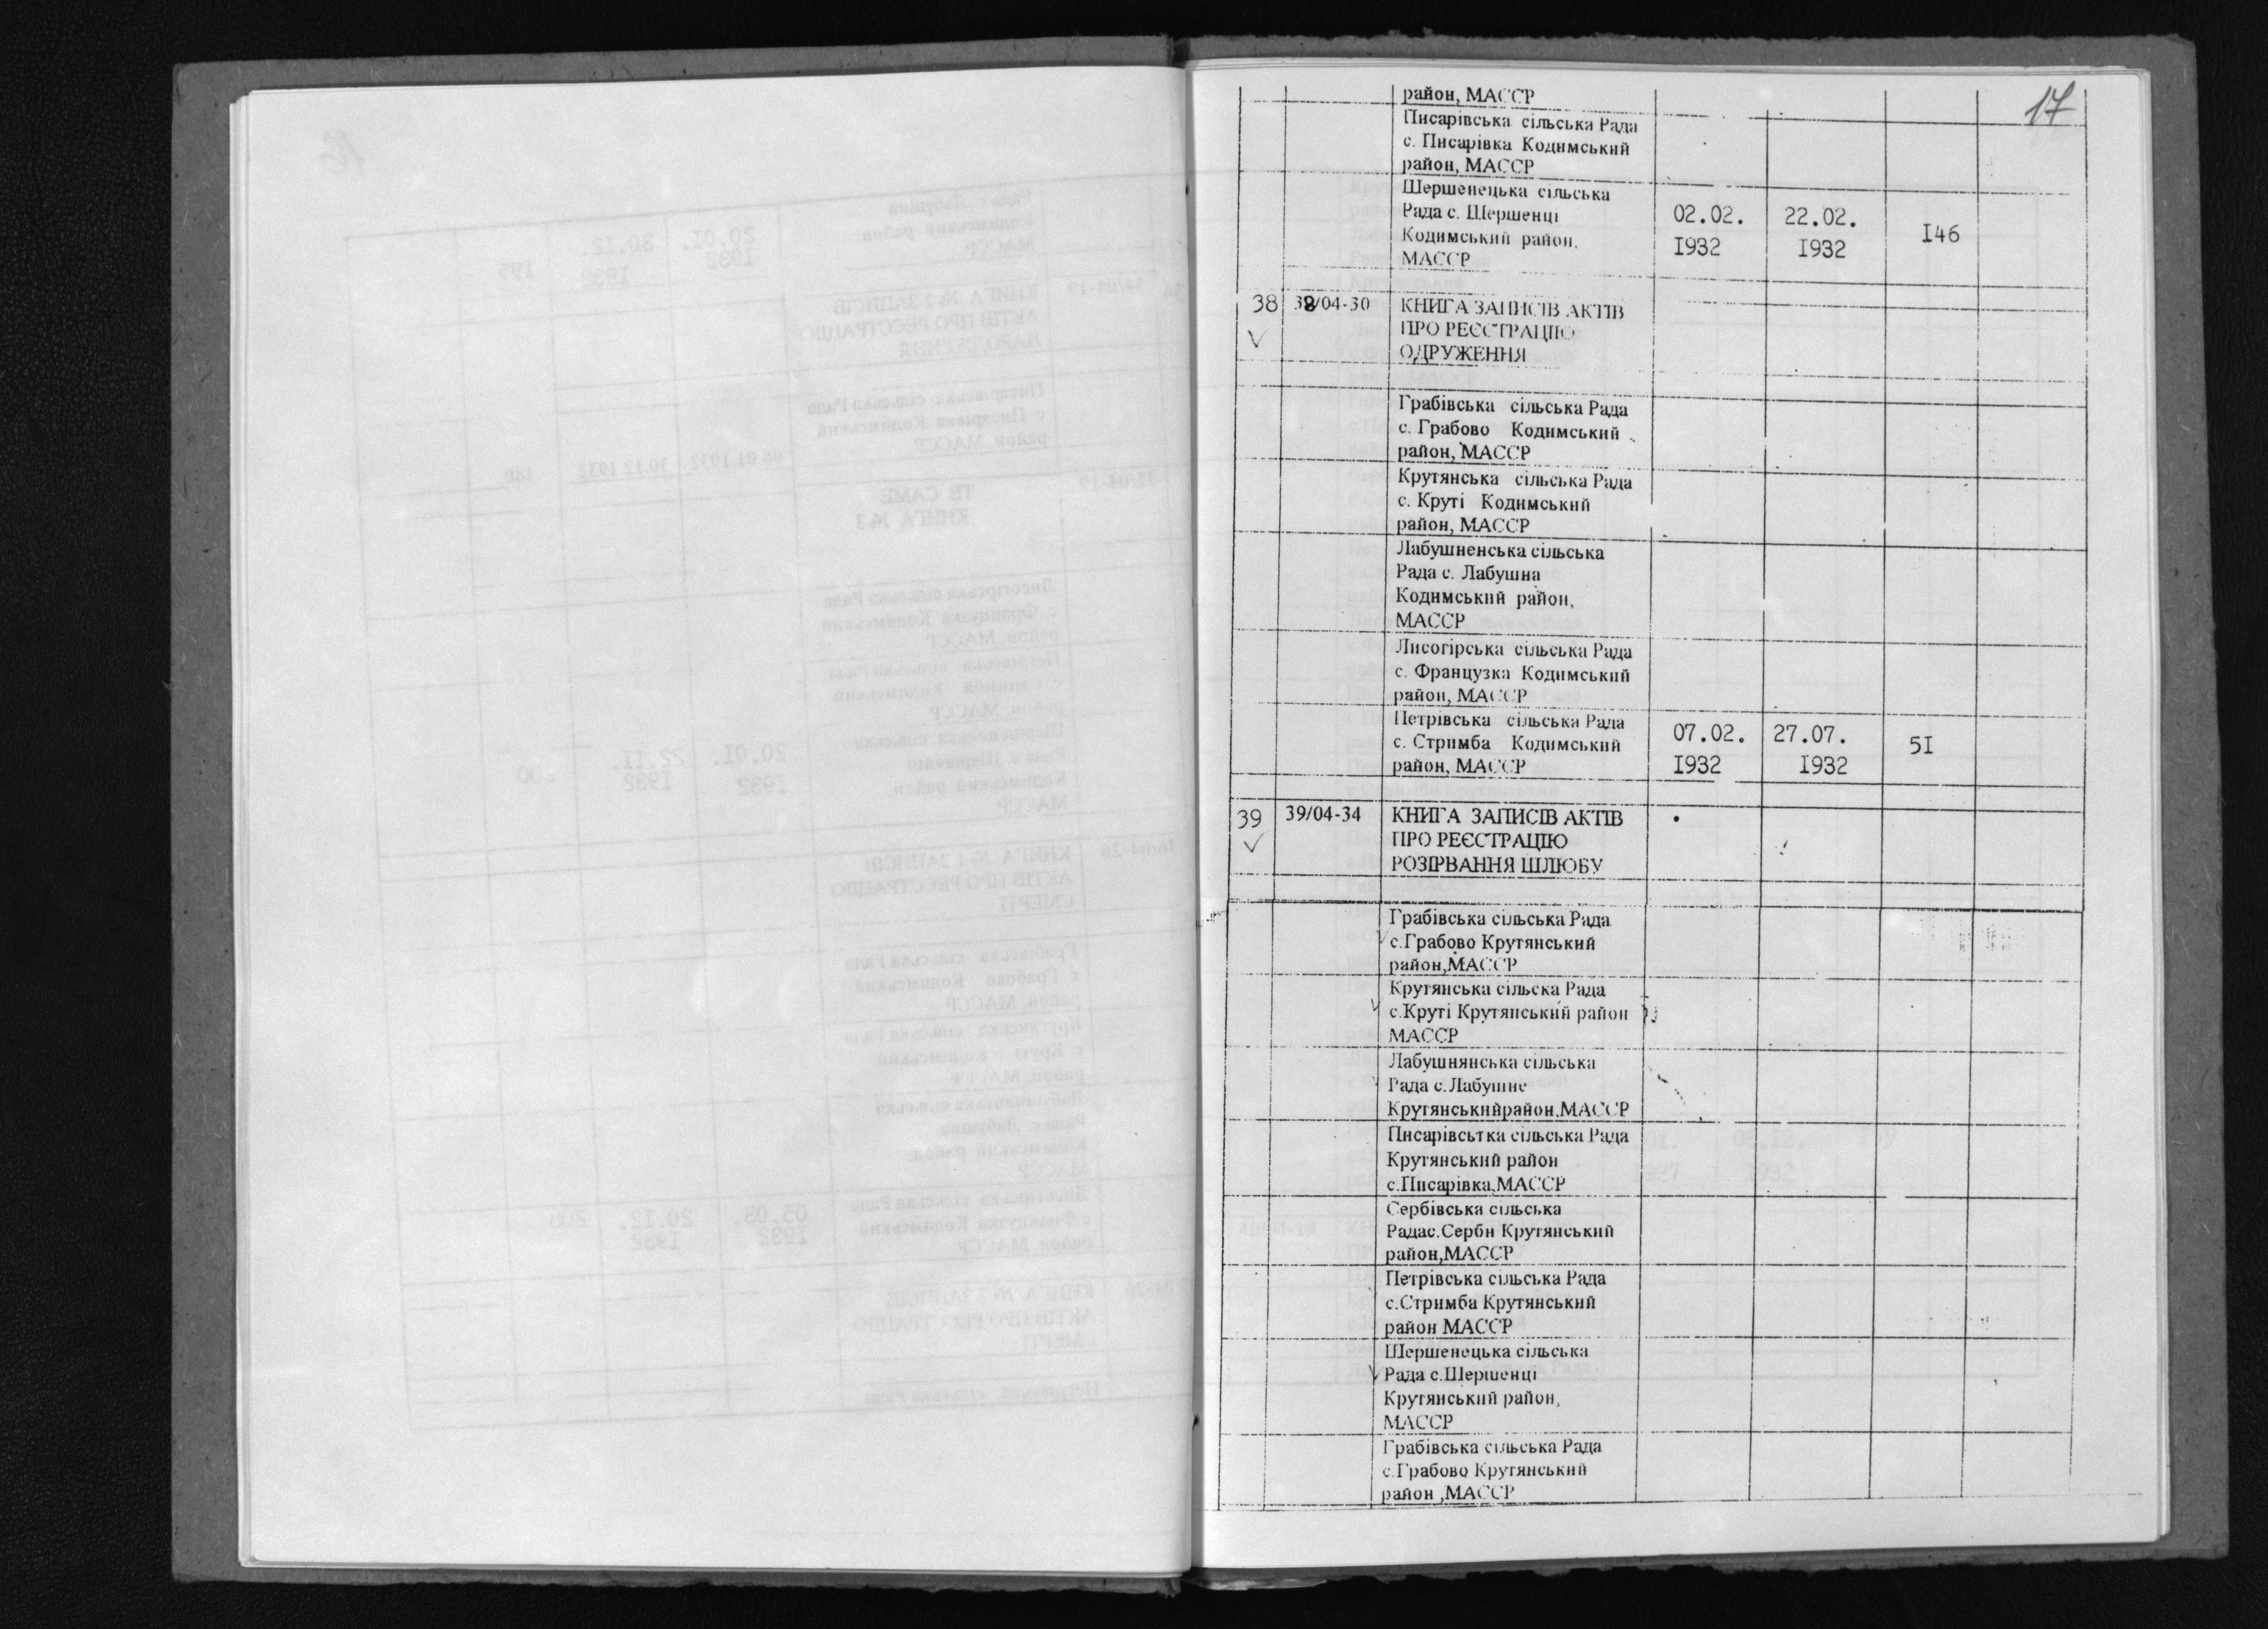 17
район, МАССР
Писарівська сільська Рада
с. Писарівка Кодимський
район, МАССР
Шершенецька сільська
Рада с. Шершенці
Кодимський район,
МАССР
02.02.
I932
22.02.
I932
I46
38
38/04-30
КНИГА ЗАПИСІВ АКТІВ
ПРО РЕЄСТРАЦІЮ
ОДРУЖЕННЯ
Грабівська сільська Рада
с. Грабово Кодимський
район, МАССР
Крутянська сільська Рада
с. Круті Кодимський
район, МАССР
Лабушненська сільська
Рада с. Лабушна
Кодимський район,
МАССР
Лисогірська сільська Рада
с. Французка Кодимський
район, МАССР
Петрівська сільська Рада
с. Стримба Кодимський
район, МАССР
07.02.
I932
27.07.
I932
5I
39
39/04-34
КНИГА ЗАПИСІВ АКТІВ
ПРО РЕЄСТРАЦІЮ
РОЗІРВАННЯ ШЛЮБУ
Грабівська сільська Рада
с.Грабово Крутянський
район,МАССР
Крутянська сільска Рада
с.Круті Крутянський район
МАССР
Лабушнянська сільська
Рада с.Лабушне
Крутянськийрайон,МАССР
Писарівсьтка сільська Рада
Крутянський район
с.Писарівка,МАССР
Сербівська сільська
Радас.Серби Крутянський
район,МАССР
Петрівська сільська Рада
с.Стримба Крутянський
район МАССР
Шершенецька сільська
Рада с.Шершенці
Крутянський район,
МАССР
Грабівська сільська Рада
с.Грабово Крутянський
район ,МАССР